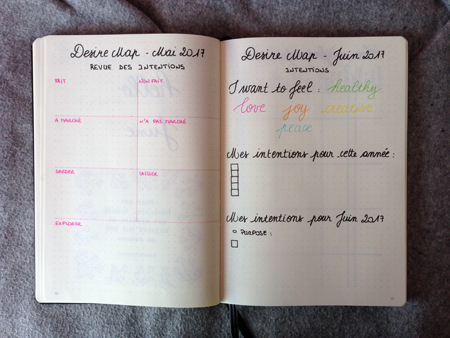 Desire Map - Mai 2017
REVUE DES INTENTIONS
FAIT NON FAIT
A MARCHÉ N'A PAS MARCHÉ
GARDER LAISSER
EXPLORER
Desire Map - Juin 2017
INTENTIONS
I want to feel : healthy
love joy creative
peace
Mes intentions pour cette année :
Mes intentions pour Juin 2017
PURPOSE :